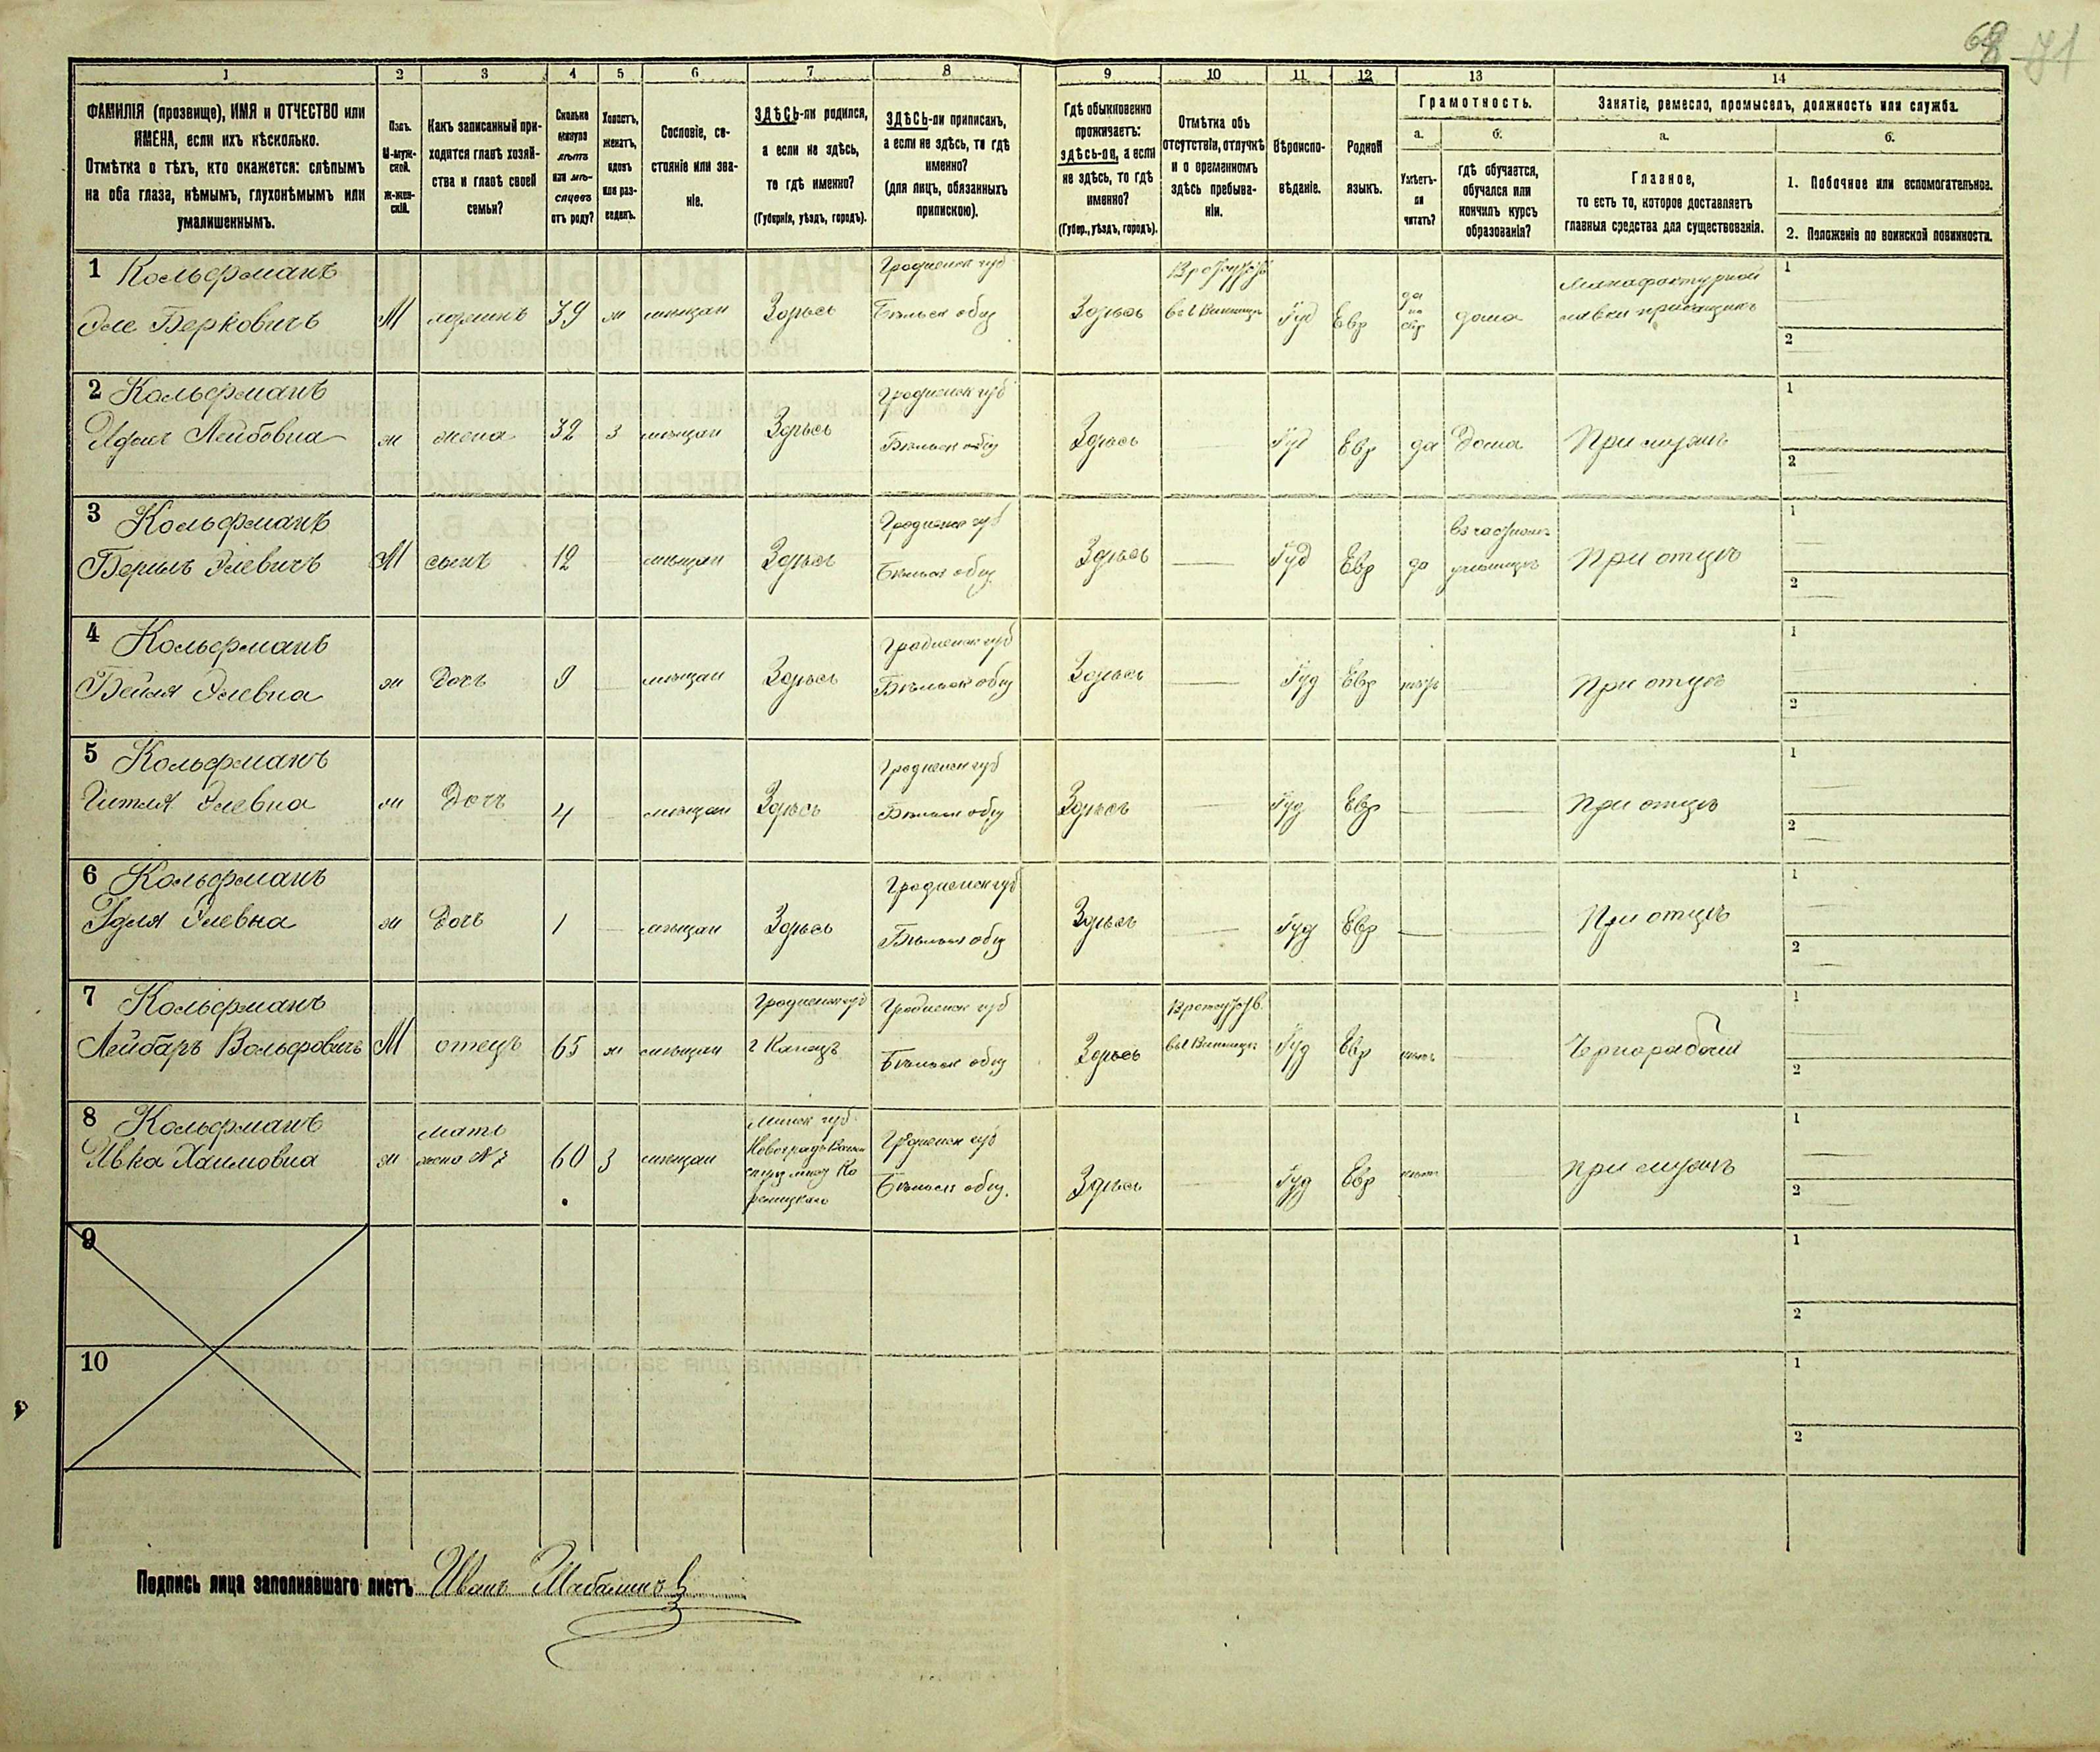 68 71
1 2 3 4 5 6 7 8 9 10 11 12 13 14
ФАМИЛІЯ (прозвище), ИМЯ и ОТЧЕСТВО или
ИМЕНА, если ихъ нѣсколько.
Отмѣтка о тѣхъ, кто окажется: слѣпымъ
на оба глаза, нѣмымъ, глухонѣмымъ или
умалишеннымъ.
Полъ.
М-муж-
ской.
Ж-жен-
скій.
Какъ записанный при-
ходится главѣ хозяй-
ства и главѣ своей
семьи?
Сколько
минуло
лѣтъ
или мѣ-
сяцевъ
отъ роду?
Холостъ,
женатъ,
вдовъ
или раз-
веденъ.
Сословіе, со-
стояніе или зва-
ніе.
ЗДѢСЬ-ли родился,
а если не здѣсь,
то гдѣ именно?
(Губернія, уѣздъ, городъ).
ЗДѢСЬ-ли приписанъ,
а если не здѣсь, то гдѣ
именно?
(для лицъ, обязанныхъ
припискою).
Гдѣ обыкновенно
проживаетъ:
здѣсь-ли, а если
не здѣсь, то гдѣ
именно?
(Губер., уѣздъ, городъ).
Отмѣтка объ
отсутствіи, отлучкѣ
и о временномъ
здѣсь пребыва-
ніи.
Вѣроиспо-
вѣданіе.
Родной
языкъ.
Грамотность.
а.
Умѣетъ-
ли
читать?
б.
гдѣ обучается,
обучался или
кончилъ курсъ
образованія?
Занятіе, ремесло, промыселъ, должность или служба.
а.
Главное,
то есть то, которое доставляетъ
главныя средства для существованія.
б.
1. Побочное или вспомогательное.
2. Положеніе по воинской повинности.
1 Кольфманъ Гродненск губ
Эле Берковичъ М 39 ж мѣщан Здѣсь Бѣльск общ Здѣсь Іуд Евр да дома
Манафактурной
лавки прикащикъ
1
2
2 Кольфманъ Гродненск губ
Лейбовна ж жена 32 З мѣщан Здѣсь Бѣльск общ Здѣсь Іуд Евр да дома При мужѣ
1
2
3 Кольфманъ Гродненск губ
Берылъ Элевичъ М сынъ 12 мѣщан Здѣсь Бѣльск общ Здѣсь Іуд Евр да училищѣ При отцѣ
1
2
4 Кольфманъ Гродненск губ
Бейля Элевна ж Дочь 9 мѣщан Здѣсь Бѣльск общ Здѣсь Іуд Евр нѣтъ При отцѣ
1
2
5 Кольфманъ Гродненск губ
Гитля Элевна ж Дочь 4 мѣщан Здѣсь Бѣльск общ Здѣсь Іуд Евр При отцѣ
1
2
6 Кольфманъ Гродненск губ
Элевна ж Дочь 1 мѣщан Здѣсь Бѣльск общ Здѣсь Іуд Евр При отцѣ
1
2
7 Кольфманъ Гродненск губ Гродненск губ
Лейбаръ Вольфовичъ М отецъ 65 ж мѣщан Бѣльск общ Здѣсь Іуд Евр нѣтъ Чернорабочій
1
2
8 Кольфманъ Минск губ Гродненск губ
Ивка Хаимовна ж мать жена №7 60 З мѣщан Бѣльск общ. Здѣсь Іуд Евр нѣтъ При мужѣ
1
2
9
1
2
10
1
2
Подпись лица заполнявшаго листъ Иванъ